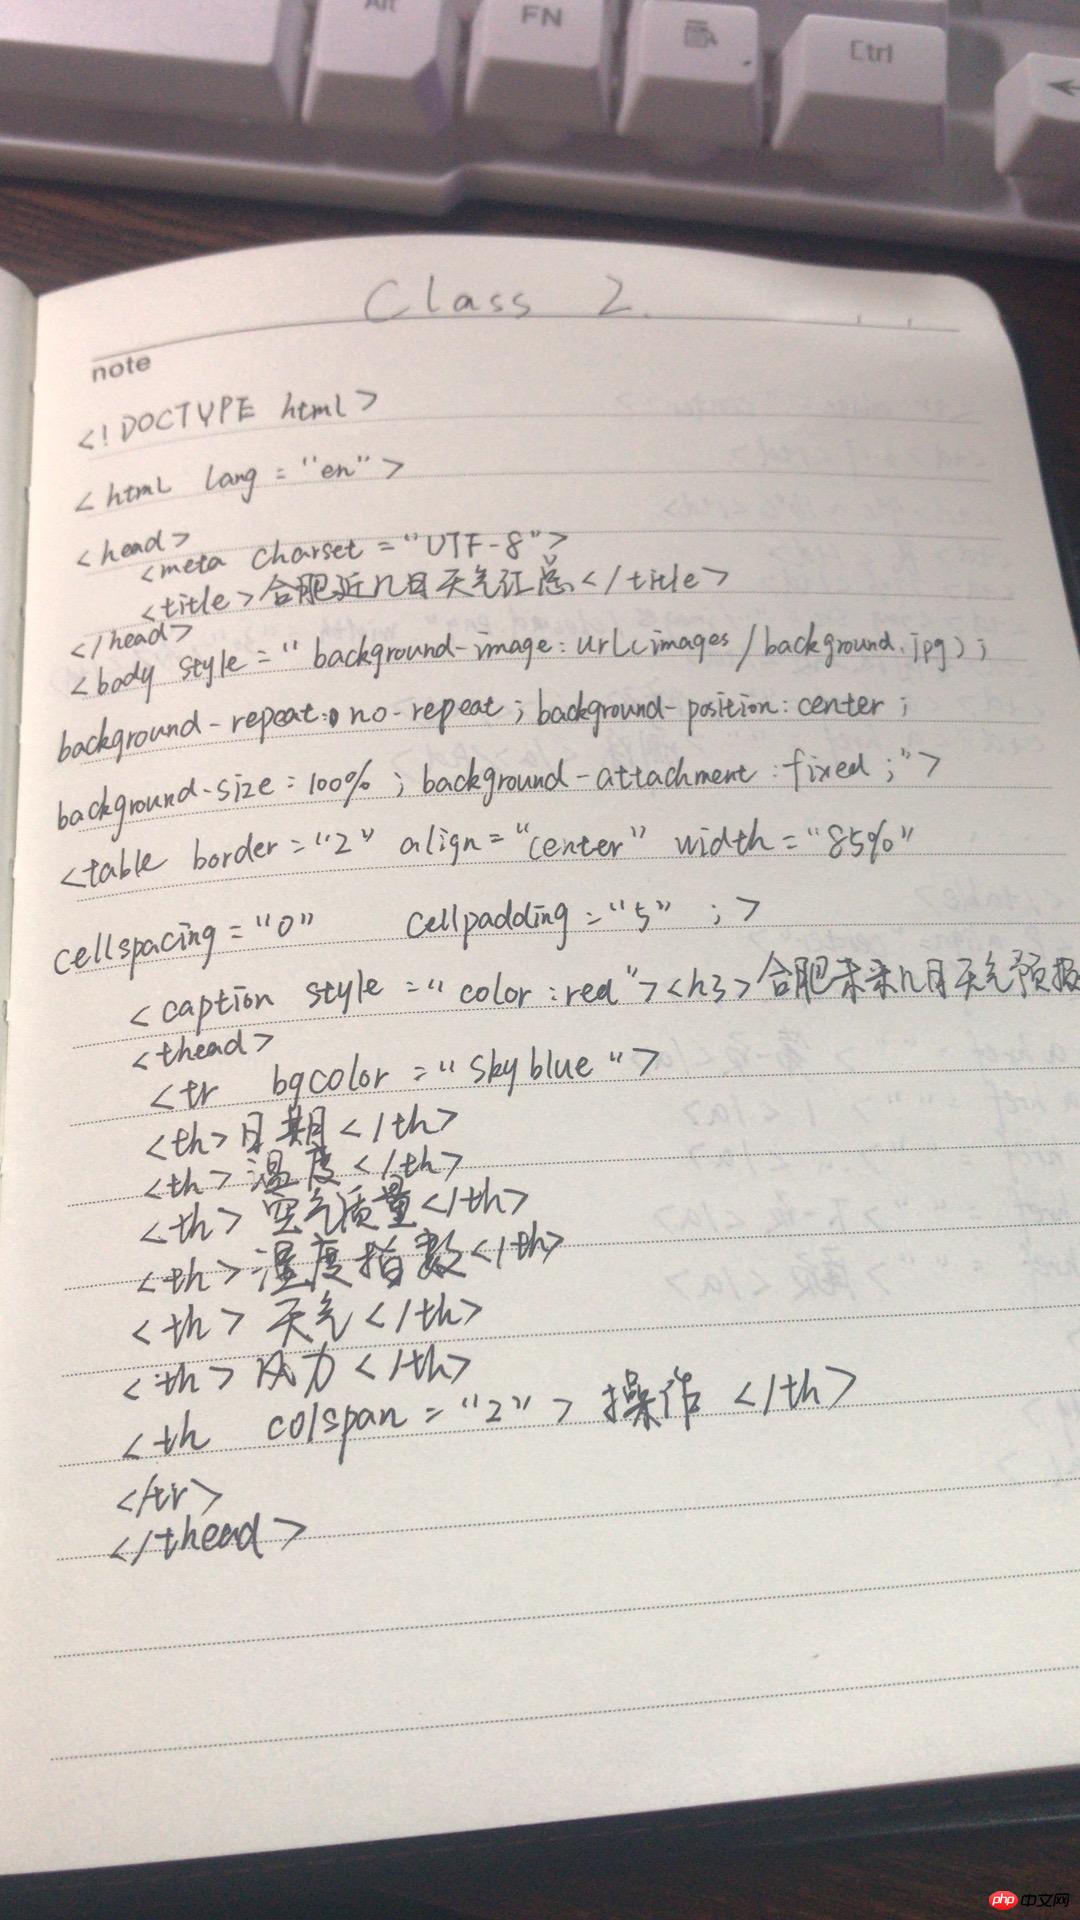 Alt
FN
Ctrl
Class 2.
note
<!DOCTYPE html>
<html lang="en">
<head>
<meta charset="UTF-8">
<title>合肥近几日天气汇总</title>
</head>
<body style="background-image:url(images/background.jpg);
background-repeat:no-repeat;background-position:center;
background-size:100%;background-attachment:fixed;">
<table border="2" align="center" width="85%"
cellspacing="0" cellpadding="5";>
<caption style="color:red"><h3>合肥未来几月天气预报
<thead>
<tr bgcolor="skyblue">
<th>日期</th>
<th>温度</th>
<th>空气质量</th>
<th>湿度指数</th>
<th>天气</th>
<th>风力</th>
<th colspan="2">操作</th>
</tr>
</thead>
php 中文网